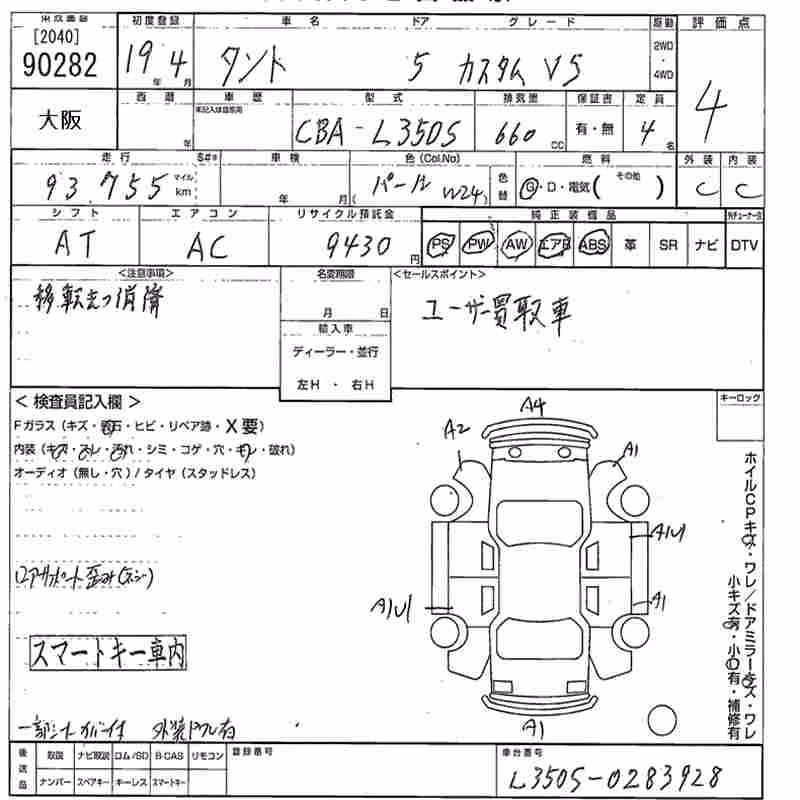 [2040]
90282
初度登録
車名
ドア
グレード
原動
評価点
19年 4月
タント
5
カスタム VS
2WD
・
4WD
4
大阪
西暦
車歴
型式
排気量
保証書
定員
未記入は自家用
年
CBA-L350S
660 CC
有・無
4名
走行
車検
色(Col.No)
燃料
外装
内装
93,755 マイル km
年 月
パール
W24
色替
G・D・電気( その他 )
C
C
シフト
エアコン
リサイクル預託金
純正装備品
AT
AC
9430円
PS
PW
AW
エアB
ABS
革
SR
ナビ
DTV
<注意事項>
名変期限
<セールスポイント>
月 日
ユーザー買取車
輸入車
ディーラー・並行
左H ・ 右H
<検査員記入欄>
キーロック
Fガラス(キズ・飛石・ヒビ・リペア跡・X要)
内装(キズ・スレ・汚れ・シミ・コゲ・穴・キレ・破れ)
オーディオ(無し・穴)/タイヤ(スタッドレス)
A4
A2
A1
A1U1
A1
A1U1
A1
ホイルCPキズ・ワレ/ドアミラーキズ・ワレ
小キズ有・小凹有・補修有
スマートキー車内
後送品
取説
ナビ取説
ロム/SD
B-CAS
リモコン
登録番号
車台番号
ナンバー
スペアキー
キーレス
スマートキー
L350S-0283928